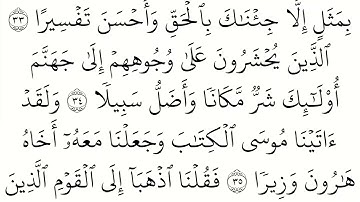 بِمَثَلٍ إِلَّا جِئْنَٰكَ بِٱلْحَقِّ وَأَحْسَنَ تَفْسِيرًا ٣٣
ٱلَّذِينَ يُحْشَرُونَ عَلَىٰ وُجُوهِهِمْ إِلَىٰ جَهَنَّمَ
أُو۟لَٰٓئِكَ شَرٌّ مَّكَانًا وَأَضَلُّ سَبِيلًا ٣٤ وَلَقَدْ
ءَاتَيْنَا مُوسَى ٱلْكِتَٰبَ وَجَعَلْنَا مَعَهُۥٓ أَخَاهُ
هَٰرُونَ وَزِيرًا ٣٥ فَقُلْنَا ٱذْهَبَآ إِلَى ٱلْقَوْمِ ٱلَّذِينَ